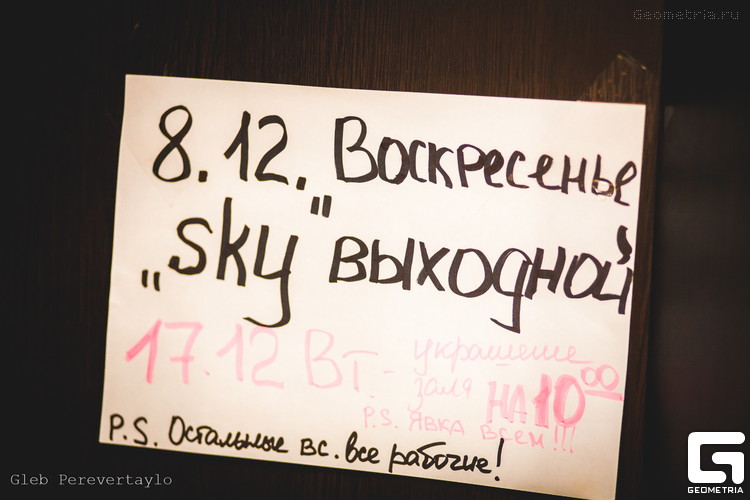 Geometria.ru
8.12. Воскресенье
„Sky" выходной
17.12 Вт. - украшение
зала НА 10 00
P.S. ЯВКА ВСЕМ!!!
P.S. Остальные вс. все рабочие!
Gleb Perevertaylo
GEOMETRIA